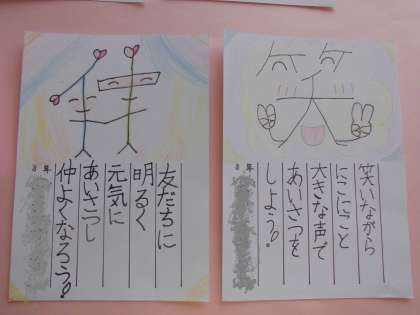 仲
友だちに
明るく
元気に
あいさつし
仲よくなろう!
年
笑
笑いながら
にこにこと
大きな声で
あいさつを
しよう!
年